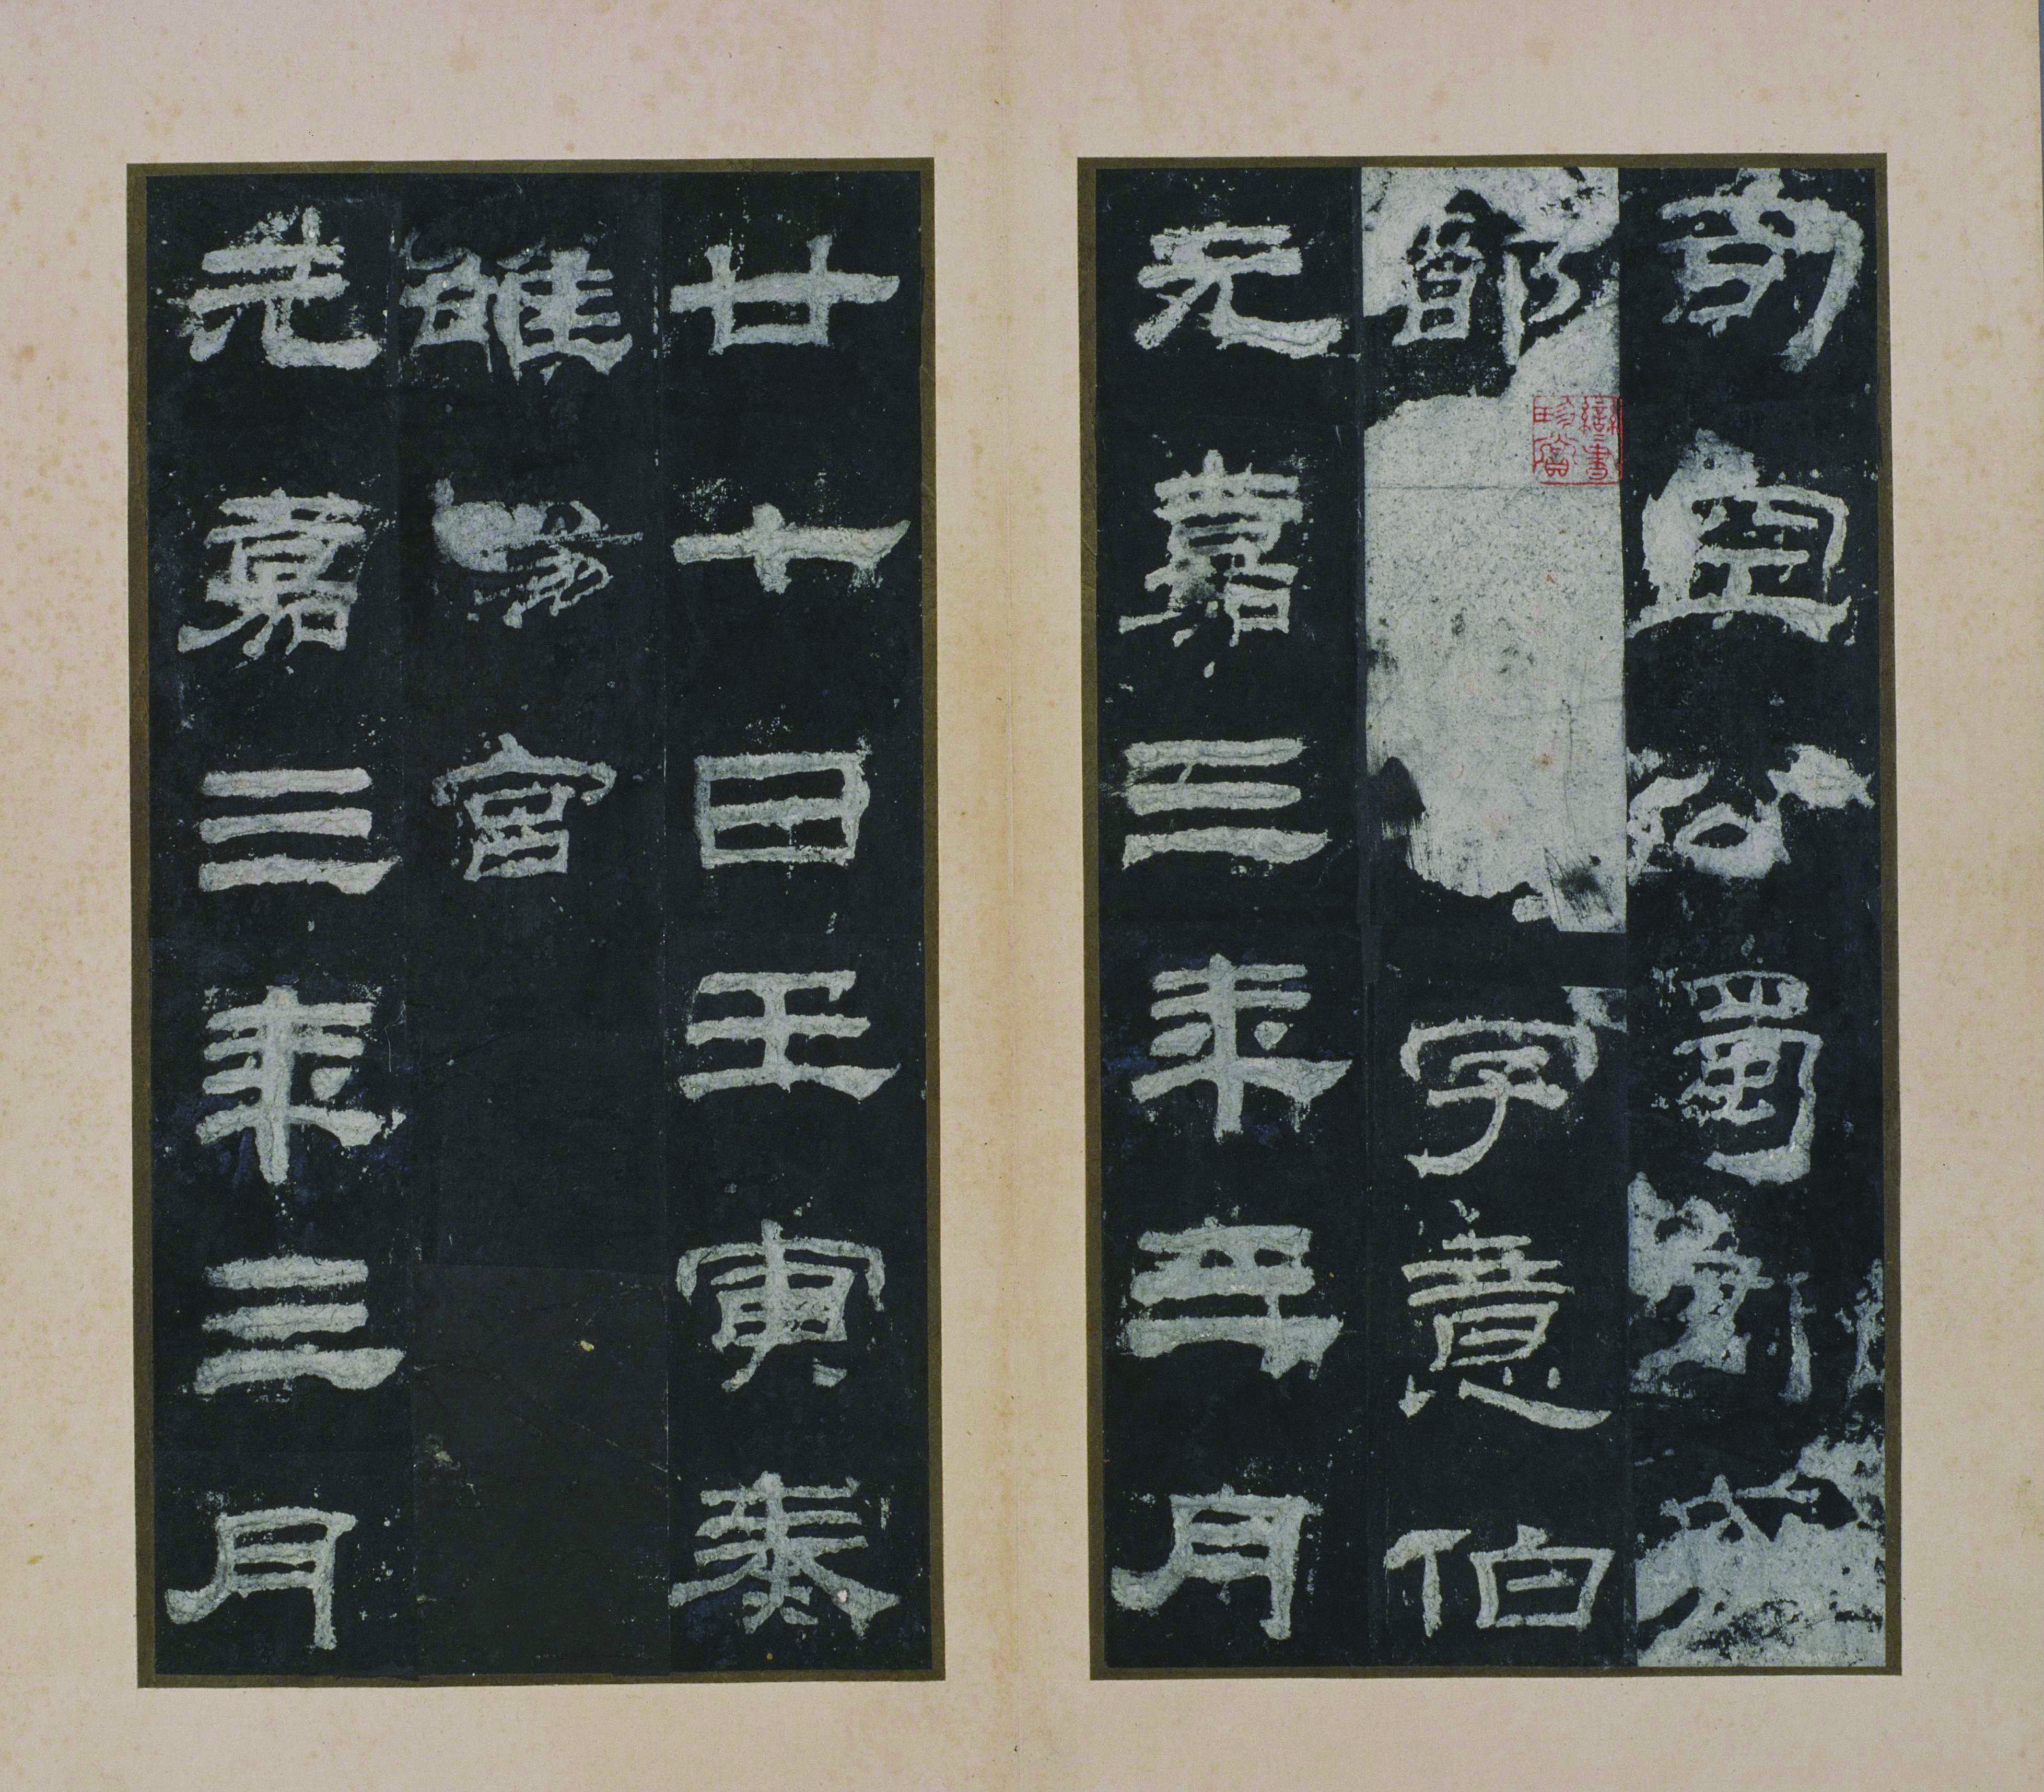 司空公蜀郡成
都字意伯
元嘉三年三月
廿七日壬寅奏
雒陽宮
元嘉三年三月